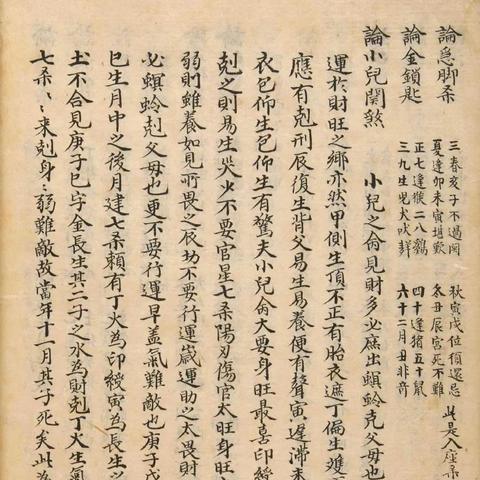 論急脚杀
三春亥子不過関
夏逢卯未寅埴歎
秋寅戌位須還忌
冬丑辰宮死不難
此是入座杀
論金鎖匙
正七逢猴二八鷄
三九生児犬吠
四十逢猪五十鼠
六十二月丑非奇
論小兒関煞
小兒之侖見財多必庶出螟蛉克父母也
運於財旺之鄉亦然甲側生頂不正有胎衣遮丁偏生雙
應有剋刑辰復生背父易生易養便有聲寅遲滞未
衣包仰生包仰生有驚夫小兒侖大要身旺最喜印綬
剋之則易生哭少不要官星七杀陽刃傷官太旺身旺
弱則雖養如見所畏之辰切不要行運歲運助之太畏財
必螟蛉剋父母也更不要行運早盖氣難敵也庚子戊
巳生月中之後月建七杀頼有丁火為印綬寅為長生之
土不合見庚子巳字金長生其二子之水為財剋丁火生氣
七杀〻来剋身〻弱難敵故當年十一月其子死矣此為